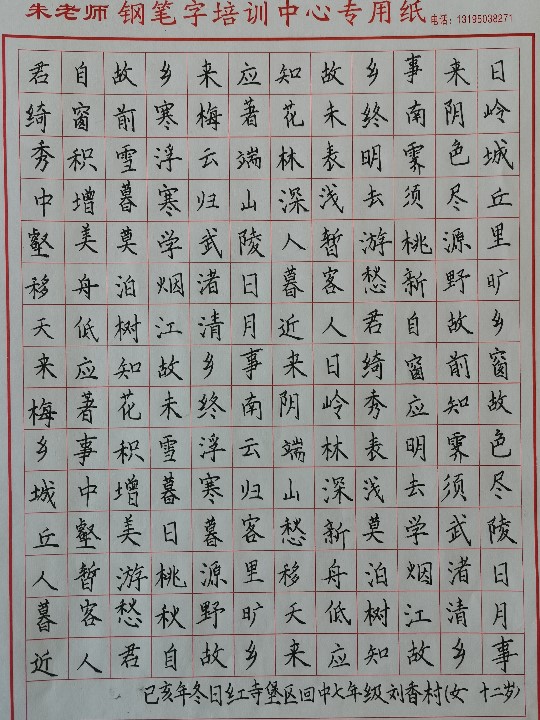 朱老师 钢笔字培训中心专用纸 电话：13195038271
君自故乡来应知故乡事来日
绮窗前寒梅著花未终南阴岭
秀积雪浮云端林表明霁色城
中增暮寒归山深浅去须尽丘
壑美莫学武陵人暂游桃源里
移舟泊烟渚日暮客愁新野旷
天低树江清月近人君自故乡
来应知故乡事来日绮窗前窗
梅著花未终南阴岭秀应知故
乡事积雪浮云端林表明霁色
城中增暮寒归山深浅去须尽
丘壑美日暮客愁新莫学武陵
人暂游桃源里移舟泊烟渚日
暮客愁秋野旷天低树江清月
近人君自故乡来应知故乡事
己亥年冬日红寺堡区回中七年级刘香村(女 十二岁)